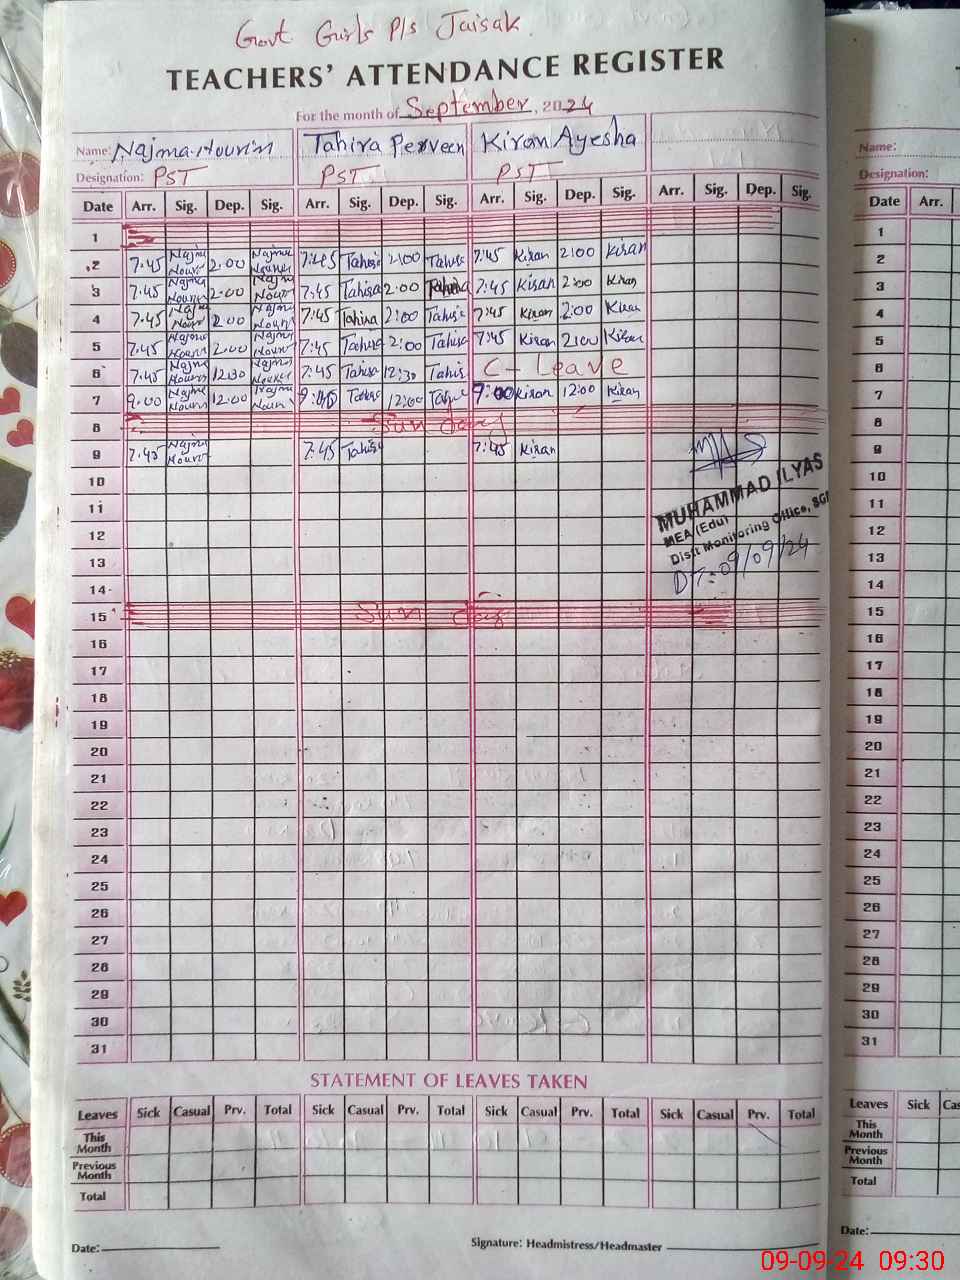 Govt Girls P/s Jaisak
TEACHERS' ATTENDANCE REGISTER
For the month of September, 2024
Name: Najma Nourin Tahira Perveen Kiran Ayesha
Designation: PST PST PST
Date Arr. Sig. Dep. Sig. Arr. Sig. Dep. Sig. Arr. Sig. Dep. Sig. Arr. Sig. Dep. Sig.
1
2 7:45 Najma Nourin 2:00 Najma Nourin 7:45 Tahira 2:00 Tahira 7:45 Kiran 2:00 Kiran
3 7:45 Najma Nourin 2:00 Najma Nourin 7:45 Tahira 2:00 Tahira 7:45 Kiran 2:00 Kiran
4 7:45 Najma Nourin 2:00 Najma Nourin 7:45 Tahira 2:00 Tahira 7:45 Kiran 2:00 Kiran
5 7:45 Najma Nourin 2:00 Najma Nourin 7:45 Tahira 2:00 Tahira 7:45 Kiran 2:00 Kiran
6 7:45 Najma Nourin 12:30 Najma Nourin 7:45 Tahira 12:30 Tahira C-Leave
7 9:00 Najma Nourin 12:00 Najma Nourin Tahira 12:00 Tahira 9:00 Kiran 12:00 Kiran
8 Sun day
9 7:45 Najma Nourin 7:45 Tahira 7:45 Kiran
10
11
12
13
14
15 Sun day
16
17
18
19
20
21
22
23
24
25
26
27
28
29
30
31
MUHAMMAD ILYAS
MEA (Edu)
Distt Monitoring Office, SG
DT: 09/09/24
STATEMENT OF LEAVES TAKEN
Leaves Sick Casual Prv. Total Sick Casual Prv. Total Sick Casual Prv. Total Sick Casual Prv. Total
This Month
Previous Month
Total
Date: Signature: Headmistress/Headmaster
Name:
Designation:
Date Arr.
1
2
3
4
5
6
7
8
9
10
11
12
13
14
15
16
17
18
19
20
21
22
23
24
25
26
27
28
29
30
31
Leaves Sick Cas
This Month
Previous Month
Total
Date:
09-09-24 09:30